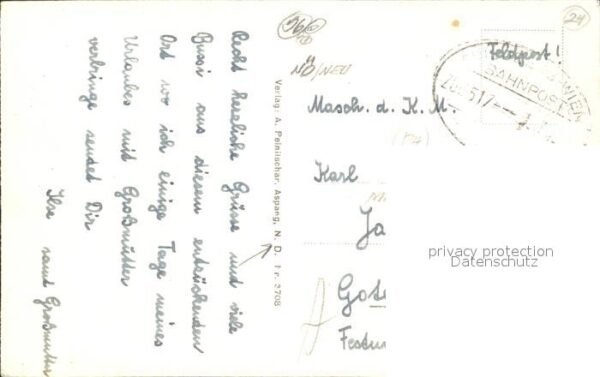 Recht herzliche Grüsse und viele
Bussi aus diesem entzückenden
Ort wo ich einige Tage meines
Urlaubes mit Großmutter
verbringe sendet Dir
Ilse samt Großmutter
Verlag A. Pelnitschar, Aspang, N. D. Nr. 3708
966
NÖ/NEU
24
Feldpost!
WIEN
BAHNPOST
ZUG 517
Masch. d. K. M.
Karl
Ja
Got
Festun
privacy protection
Datenschutz